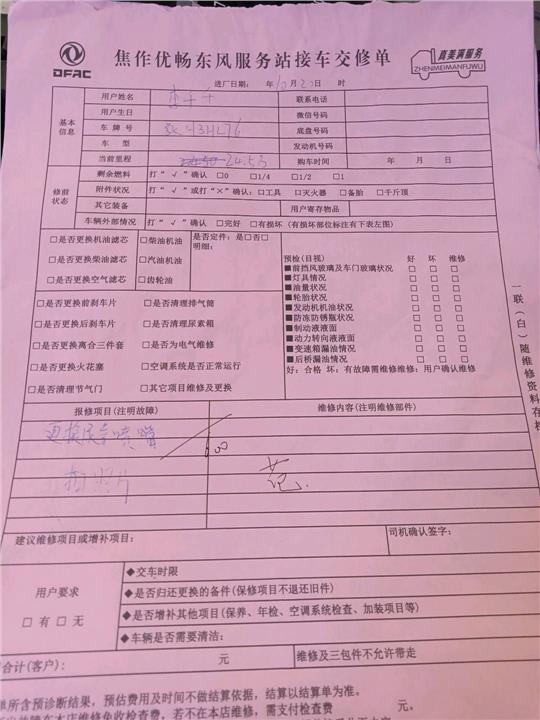 DFAC
焦作优畅东风服务站接车交修单
真美满服务
ZHENMEIMANFUWU
进厂日期： 年 月 日 时
基本信息
用户姓名 联系电话
用户生日 微信号码
车牌号 底盘号码
车型 发动机号码
当前里程 2453 购车时间 年 月 日
修前状态
剩余燃料 打“√”确认 □0 □1/4 □1/2 □1
附件状况 打“√”或打“×”确认：□工具 □灭火器 □备胎 □千斤顶
其它装备 用户寄存物品
车辆外部情况 打“√”确认 □完好 □有损坏（有损坏部位标注有下表左图）
□是否更换机油滤芯 □柴油机油 是否定件：是□否□
明细：
□是否更换柴油滤芯 □汽油机油
□是否更换空气滤芯 □齿轮油
预检(目视) 好 坏 维修
■前挡风玻璃及车门玻璃状况 □ □ □
■灯具情况 □ □ □
■油量状况 □ □ □
■轮胎状况 □ □ □
■发动机机油状况 □ □ □
■防冻防锈瓶状况 □ □ □
■制动液液面 □ □ □
■动力转向液液面 □ □ □
■变速箱漏油情况 □ □ □
■后桥漏油情况 □ □ □
好：合格 坏：有故障需维修维修：用户确认维修
□是否更换前刹车片 □是否清理排气筒
□是否更换后刹车片 □是否清理尿素箱
□是否更换离合三件套 □是否为电气维修
□是否更换火花塞 □空调系统是否正常运行
□是否清理节气门 □其它项目维修及更换
一联（白）随维修资料存档
报修项目(注明故障) 维修内容(注明维修部件)
更换尿素喷嘴
100
照片
建议维修项目或增补项目： 司机确认签字：
用户要求
□有 □无
◆交车时限
◆是否归还更换的备件(保修项目不退还旧件)
◆是否增补其他项目(保养、年检、空调系统检查、加装项目等)
◆车辆是否需要清洁：
合计(客户)： 元 维修及三包件不允许带走
单所含预诊断结果，预估费用及时间不做结算依据，结算以结算单为准。
故障在本店维修免收检查费，若不在本店维修，需支付检查费 元。